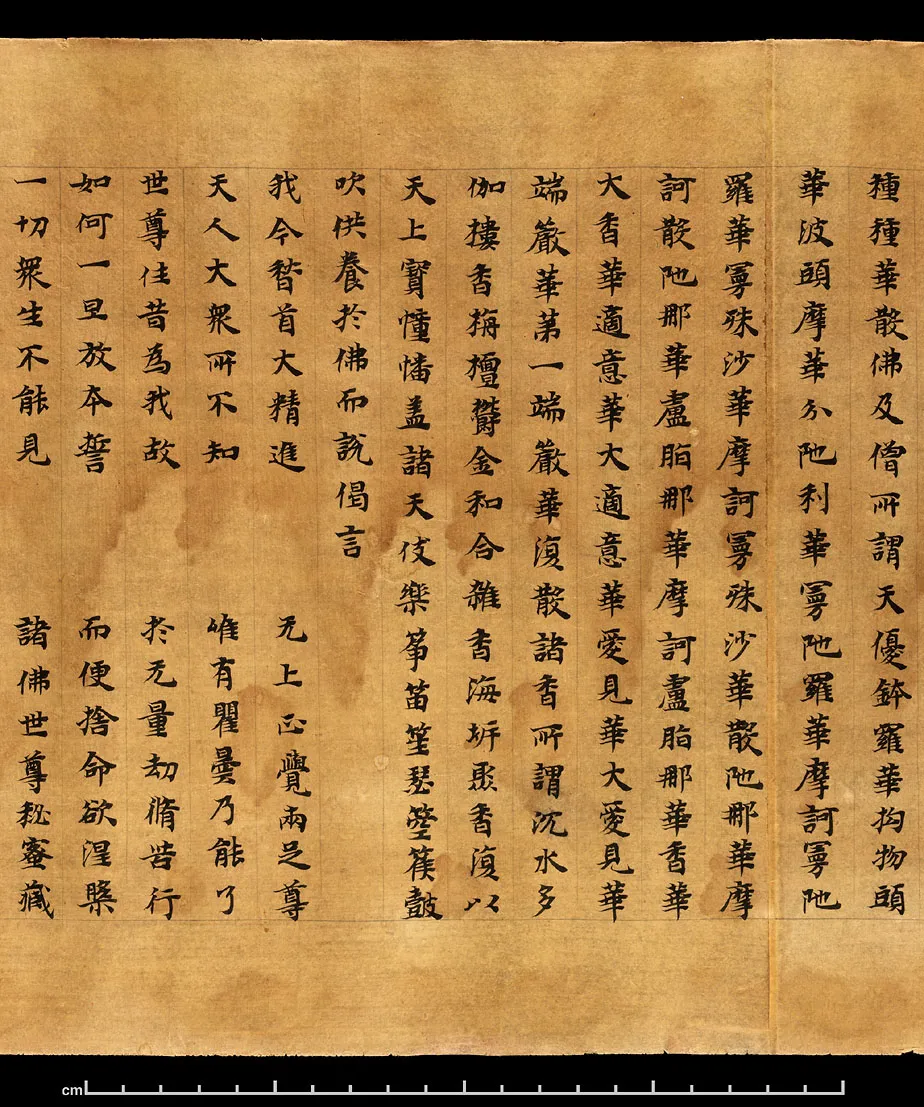 種種華散佛及僧所謂天優鉢羅華拘物頭
華波頭摩華分陁利華𭑶陁羅華摩訶𭑶陁
羅華𭑶殊沙華摩訶𭑶殊沙華散陁那華摩
訶散陁那華盧脂那華摩訶盧脂那華香華
大香華適意華大適意華愛見華大愛見華
端嚴華第一端嚴華復散諸香所謂沉水多
伽樓香栴檀欝金和合雜香海垳聚香復以
天上寳幢幡盖諸天伎樂筝笛笙瑟箜篌鼓
吹供養於佛而説偈言
我今稽首大精進 无上正覺兩足尊
天人大衆所不知 唯有瞿曇乃能了
世尊往昔為我故 於无量劫脩苦行
如何一旦放本誓 而便捨命欲涅槃
一切衆生不能見 諸佛世尊秘蜜藏
cm